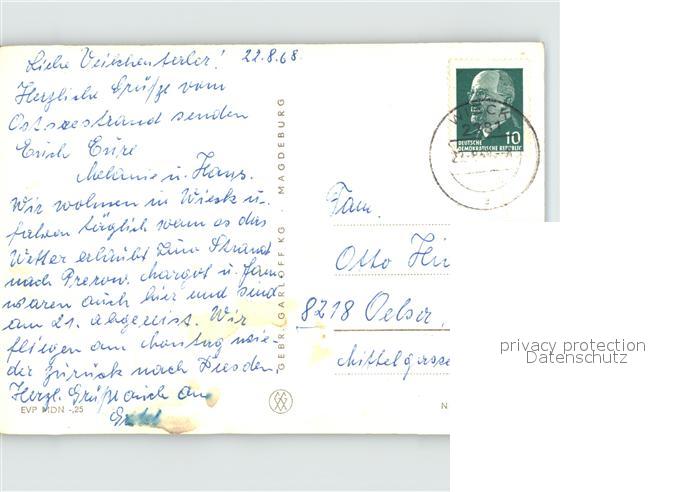 Liebe Veilchentaler! 22.8.68.
Herzliche Grüße vom
Ostseestrand senden
Euch Eure
Melanie u. Hans.
Wir wohnen in Wieck u.
fahren täglich wenn es das
Wetter erlaubt zum Strand
nach Prerow. Margot u. Fam.
waren auch hier und sind
am 21. abgereist. Wir
fliegen am Montag wie-
der zurück nach Dresden.
Herzl. Grüße auch an
EVP MDN -,25
GEBR. GARLOFF KG · MAGDEBURG
WIECK
10
DEUTSCHE
DEMOKRATISCHE REPUBLIK
Fam.
Otto
8218 Oelsa,
Mittelgasse
N
privacy protection
Datenschutz